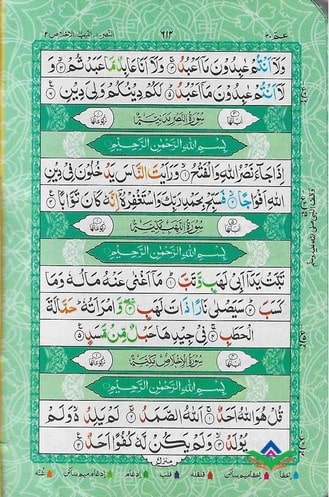 عم ٣٠ ٦١٢ النصر، اللهب، الاخلاص
وَلَآ اَنْتُمْ عٰبِدُوْنَ مَآ اَعْبُدُ ۚ وَلَآ اَنَا عَابِدٌ مَّا عَبَدْتُّمْ ۙ
وَلَآ اَنْتُمْ عٰبِدُوْنَ مَآ اَعْبُدُ ؕ لَكُمْ دِيْنُكُمْ وَلِيَ دِيْنِ
سُوْرَةُ النَّصْرِ مَدَنِيَّةٌ
بِسْمِ اللهِ الرَّحْمٰنِ الرَّحِيْمِ
اِذَا جَآءَ نَصْرُ اللهِ وَالْفَتْحُ ۙ وَرَاَيْتَ النَّاسَ يَدْخُلُوْنَ فِيْ دِيْنِ
اللهِ اَفْوَاجًا ۙ فَسَبِّحْ بِحَمْدِ رَبِّكَ وَاسْتَغْفِرْهُ ؕ اِنَّهٗ كَانَ تَوَّابًا
سُوْرَةُ اللَّهَبِ مَكِّيَّةٌ
بِسْمِ اللهِ الرَّحْمٰنِ الرَّحِيْمِ
تَبَّتْ يَدَآ اَبِيْ لَهَبٍ وَّتَبَّ ؕ مَآ اَغْنٰى عَنْهُ مَالُهٗ وَمَا
كَسَبَ ؕ سَيَصْلٰى نَارًا ذَاتَ لَهَبٍ ۚ وَّامْرَاَتُهٗ ؕ حَمَّالَةَ
الْحَطَبِ ۚ فِيْ جِيْدِهَا حَبْلٌ مِّنْ مَّسَدٍ
سُوْرَةُ الْاِخْلَاصِ مَكِّيَّةٌ
بِسْمِ اللهِ الرَّحْمٰنِ الرَّحِيْمِ
قُلْ هُوَ اللهُ اَحَدٌ ۚ اَللهُ الصَّمَدُ ۚ لَمْ يَلِدْ ۙ وَلَمْ
يُوْلَدْ ۙ وَلَمْ يَكُنْ لَّهٗ كُفُوًا اَحَدٌ
منزل
اخفا ادغام میم ساکن قلقله قلب ادغام ادغام میم ساکن غنه